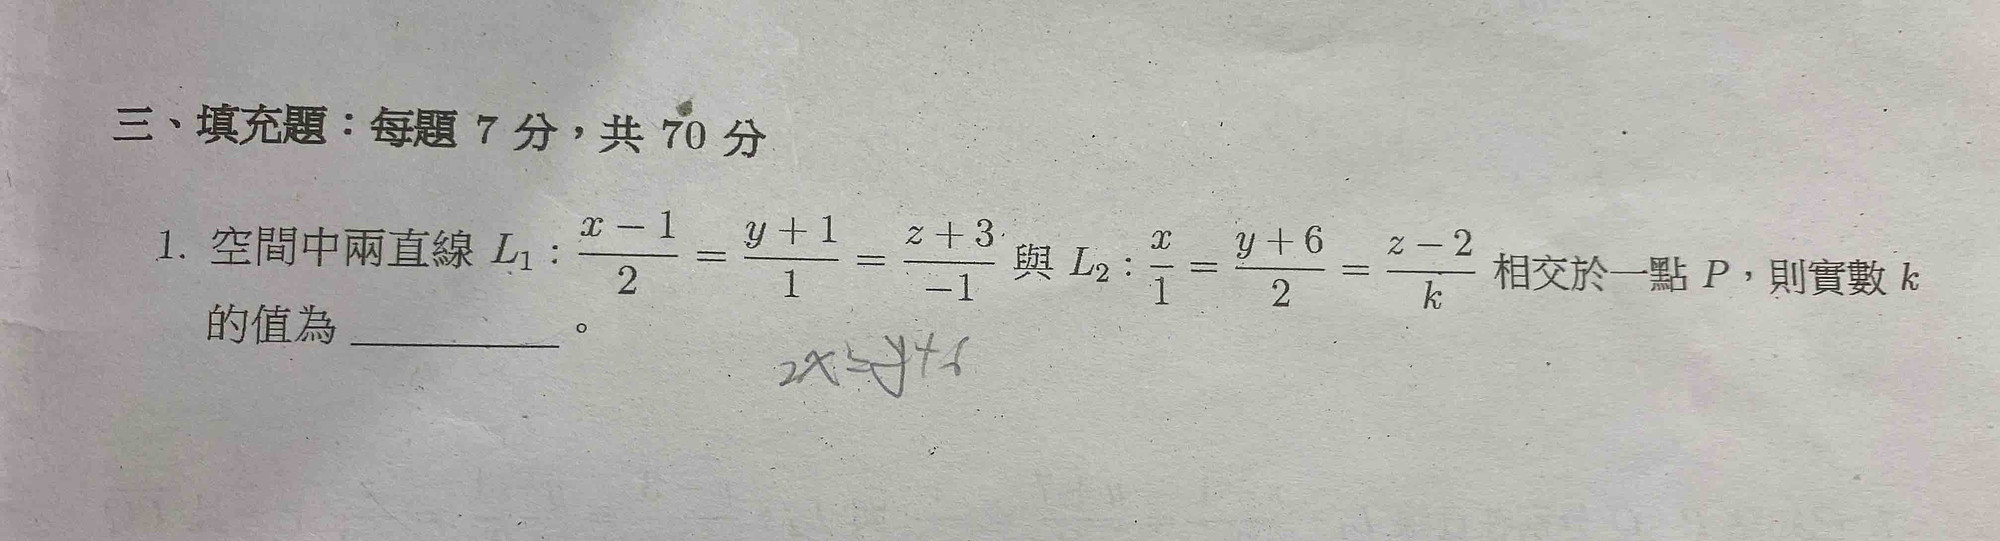 三、填充題：每題 7 分，共 70 分
1. 空間中兩直線 L₁ : (x − 1)/2 = (y + 1)/1 = (z + 3)/−1 與 L₂ : x/1 = (y + 6)/2 = (z − 2)/k 相交於一點 P，則實數 k
的值為 ________ 。
2x=y+6